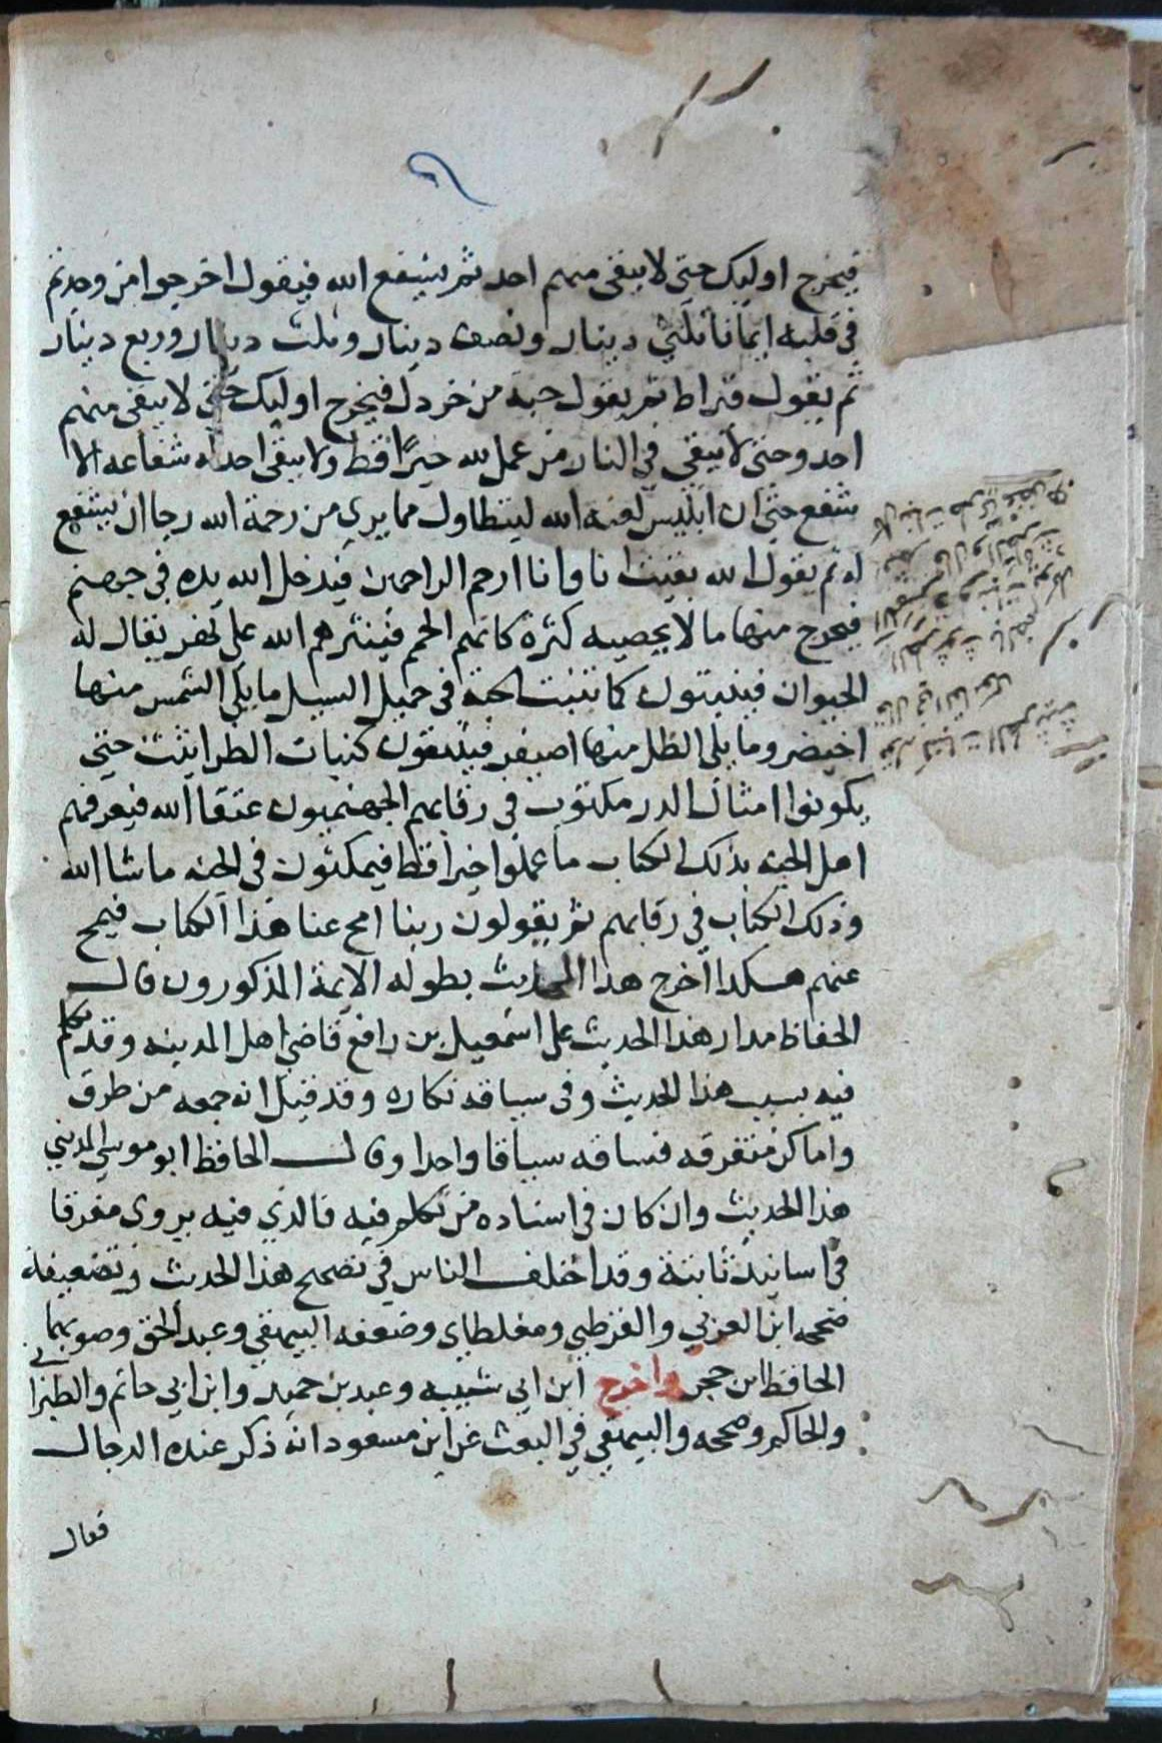 فيخرج اوليك حتى لا يبقى منهم احد ثم يشفع الله فيقول اخرجوا من وجدتم
في قلبه ايمانا ثلثي دينار ونصف دينار وثلث دينار وربع دينار
ثم يقول قيراط ثم يقول حبة من خردل فيخرج اوليك حتى لا يبقى منهم
احد وحتى لا يبقى في النار من عمل لله خيرًا قط ولا يبقى احد له شفاعه الا
شفع حتى ان ابليس لعنه الله ليتطاول مما يرى من رحمة الله رجا ان يشفع
له ثم يقول الله بقيت انا وانا ارحم الراحمين فيدخل الله يده في جهنم
فيخرج منها ما لا يحصيه كثرة كانهم الحمم فينثرهم الله على نهر يقال له
الحيوان فينبتون كما تنبت الحبة في حميل السيل ما يلي الشمس منها
اخيضر وما يلي الظل منها اصيفر فينبتون كنبات الطراثيث حتى
يكونوا امثال الدر مكتوب في رقابهم الجهنميون عتقا الله فيعرفهم
اهل الجنه بذلك الكتاب ما عملوا خيرا قط فيمكثون في الجنه ما شا الله
وذلك الكتاب في رقابهم ثم يقولون ربنا امح عنا هذا الكتاب فيمح
عنهم هكذا اخرج هذا الحديث بطوله الايمة المذكورون قال
الحفاظ مدار هذا الحديث على اسمعيل بن رافع قاضي اهل المدينه وقد تكلم
فيه بسبب هذا الحديث وفي سياقه نكاره وقد قيل انه جمعه من طرق
واماكن متفرقه فساقه سياقا واحدا وقال الحافظ ابو موسى المديني
هذا الحديث وان كان في اسناده من تكلم فيه فالذي فيه يروى مفرقا
في اسانيد ثابتة وقد اختلف الناس في تصحيح هذا الحديث وتضعيفه
فصححه ابن العربي والقرطبي ومغلطاي وضعفه البيهقي وعبد الحق وصوبهما
الحافظ ابن حجر واخرج ابن ابي شيبه وعبد بن حميد وابن ابي حاتم والطبراني
والحاكم وصححه والبيهقي في البعث عن ابن مسعود انه ذكر عنده الدجال
فقال